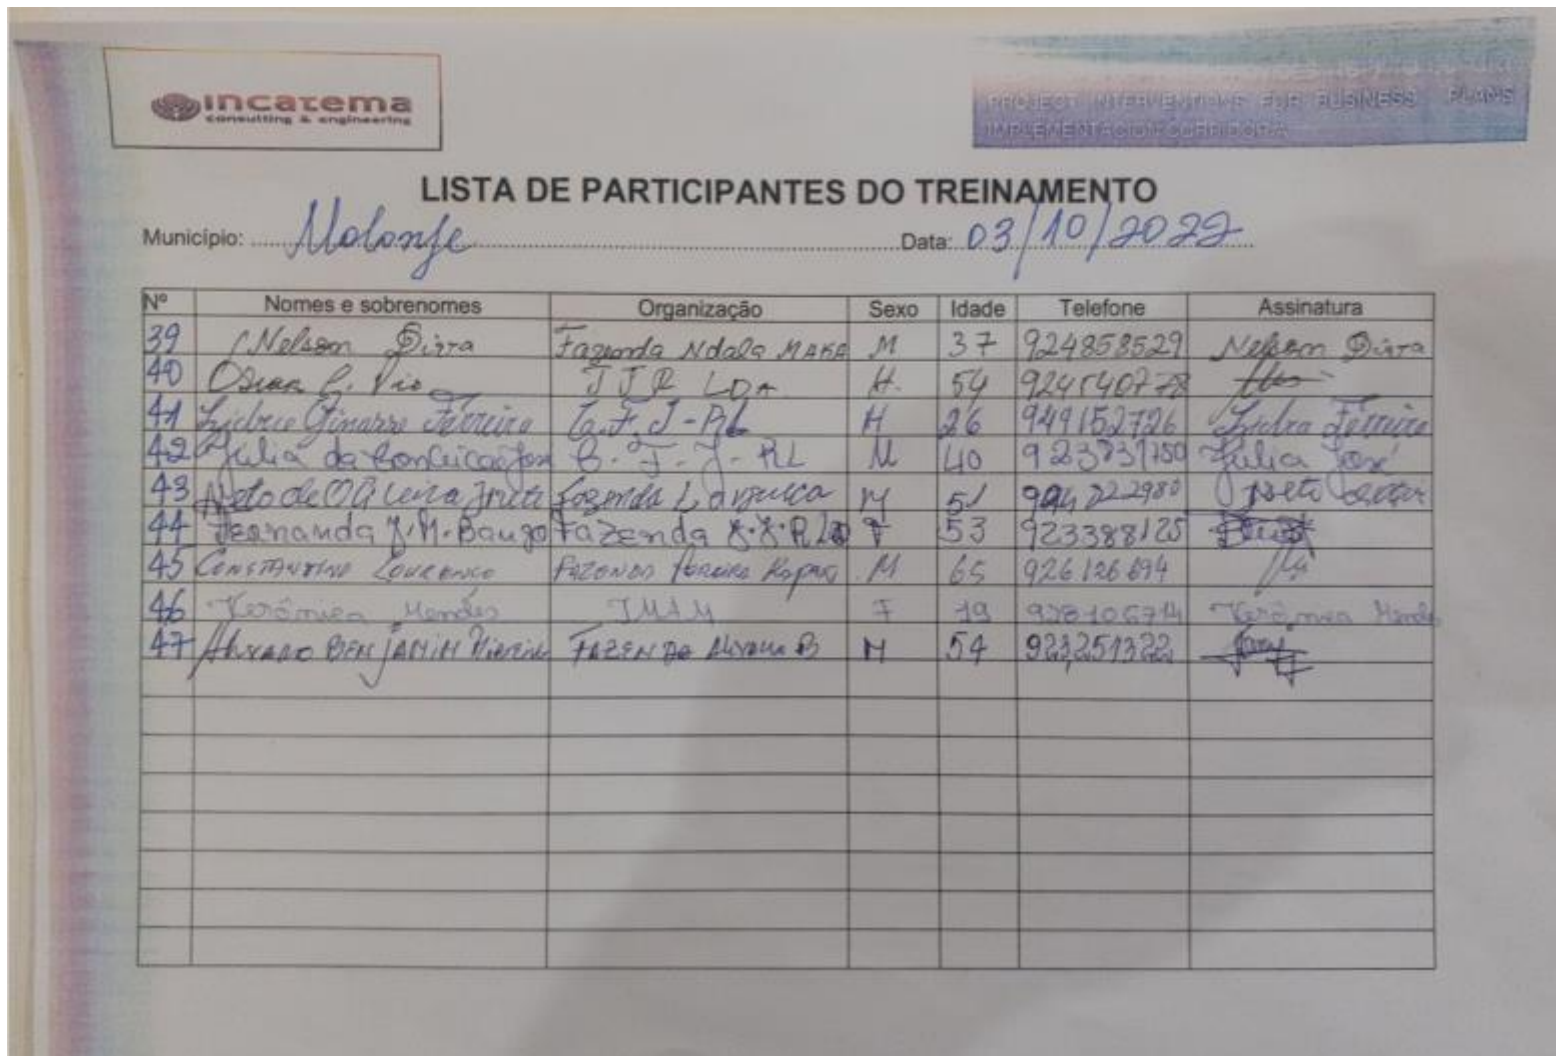 incatema
consulting & engineering
PROJECT INTERVENTIONS FOR BUSINESS PLANS
IMPLEMENTACION CORRIDOR A
LISTA DE PARTICIPANTES DO TREINAMENTO
Município: Malanje Data: 03/10/2022
Nº Nomes e sobrenomes Organização Sexo Idade Telefone Assinatura
39 Nelson Dirra Fazenda Ndala MAKA M 37 924858529 Nelson Dirra
40 Oscar P. Pio J J R LDA H. 54
41 Ferreira H 26 949152726 Ferreira
42 Julia da Conceição José M 40 Julia José
43 Neto de Oliveira Fazenda M 51 Neto
44 Fernanda J.M. Baugo Fazenda J.J.R F 53 923388125
45 CONSTANTINO LOURENÇO M 65 926126694
46 Verónica Mendes JMAM F 19 928106714 Verónica Mendes
47 BENJAMIN FAZENDA M 54 923251322